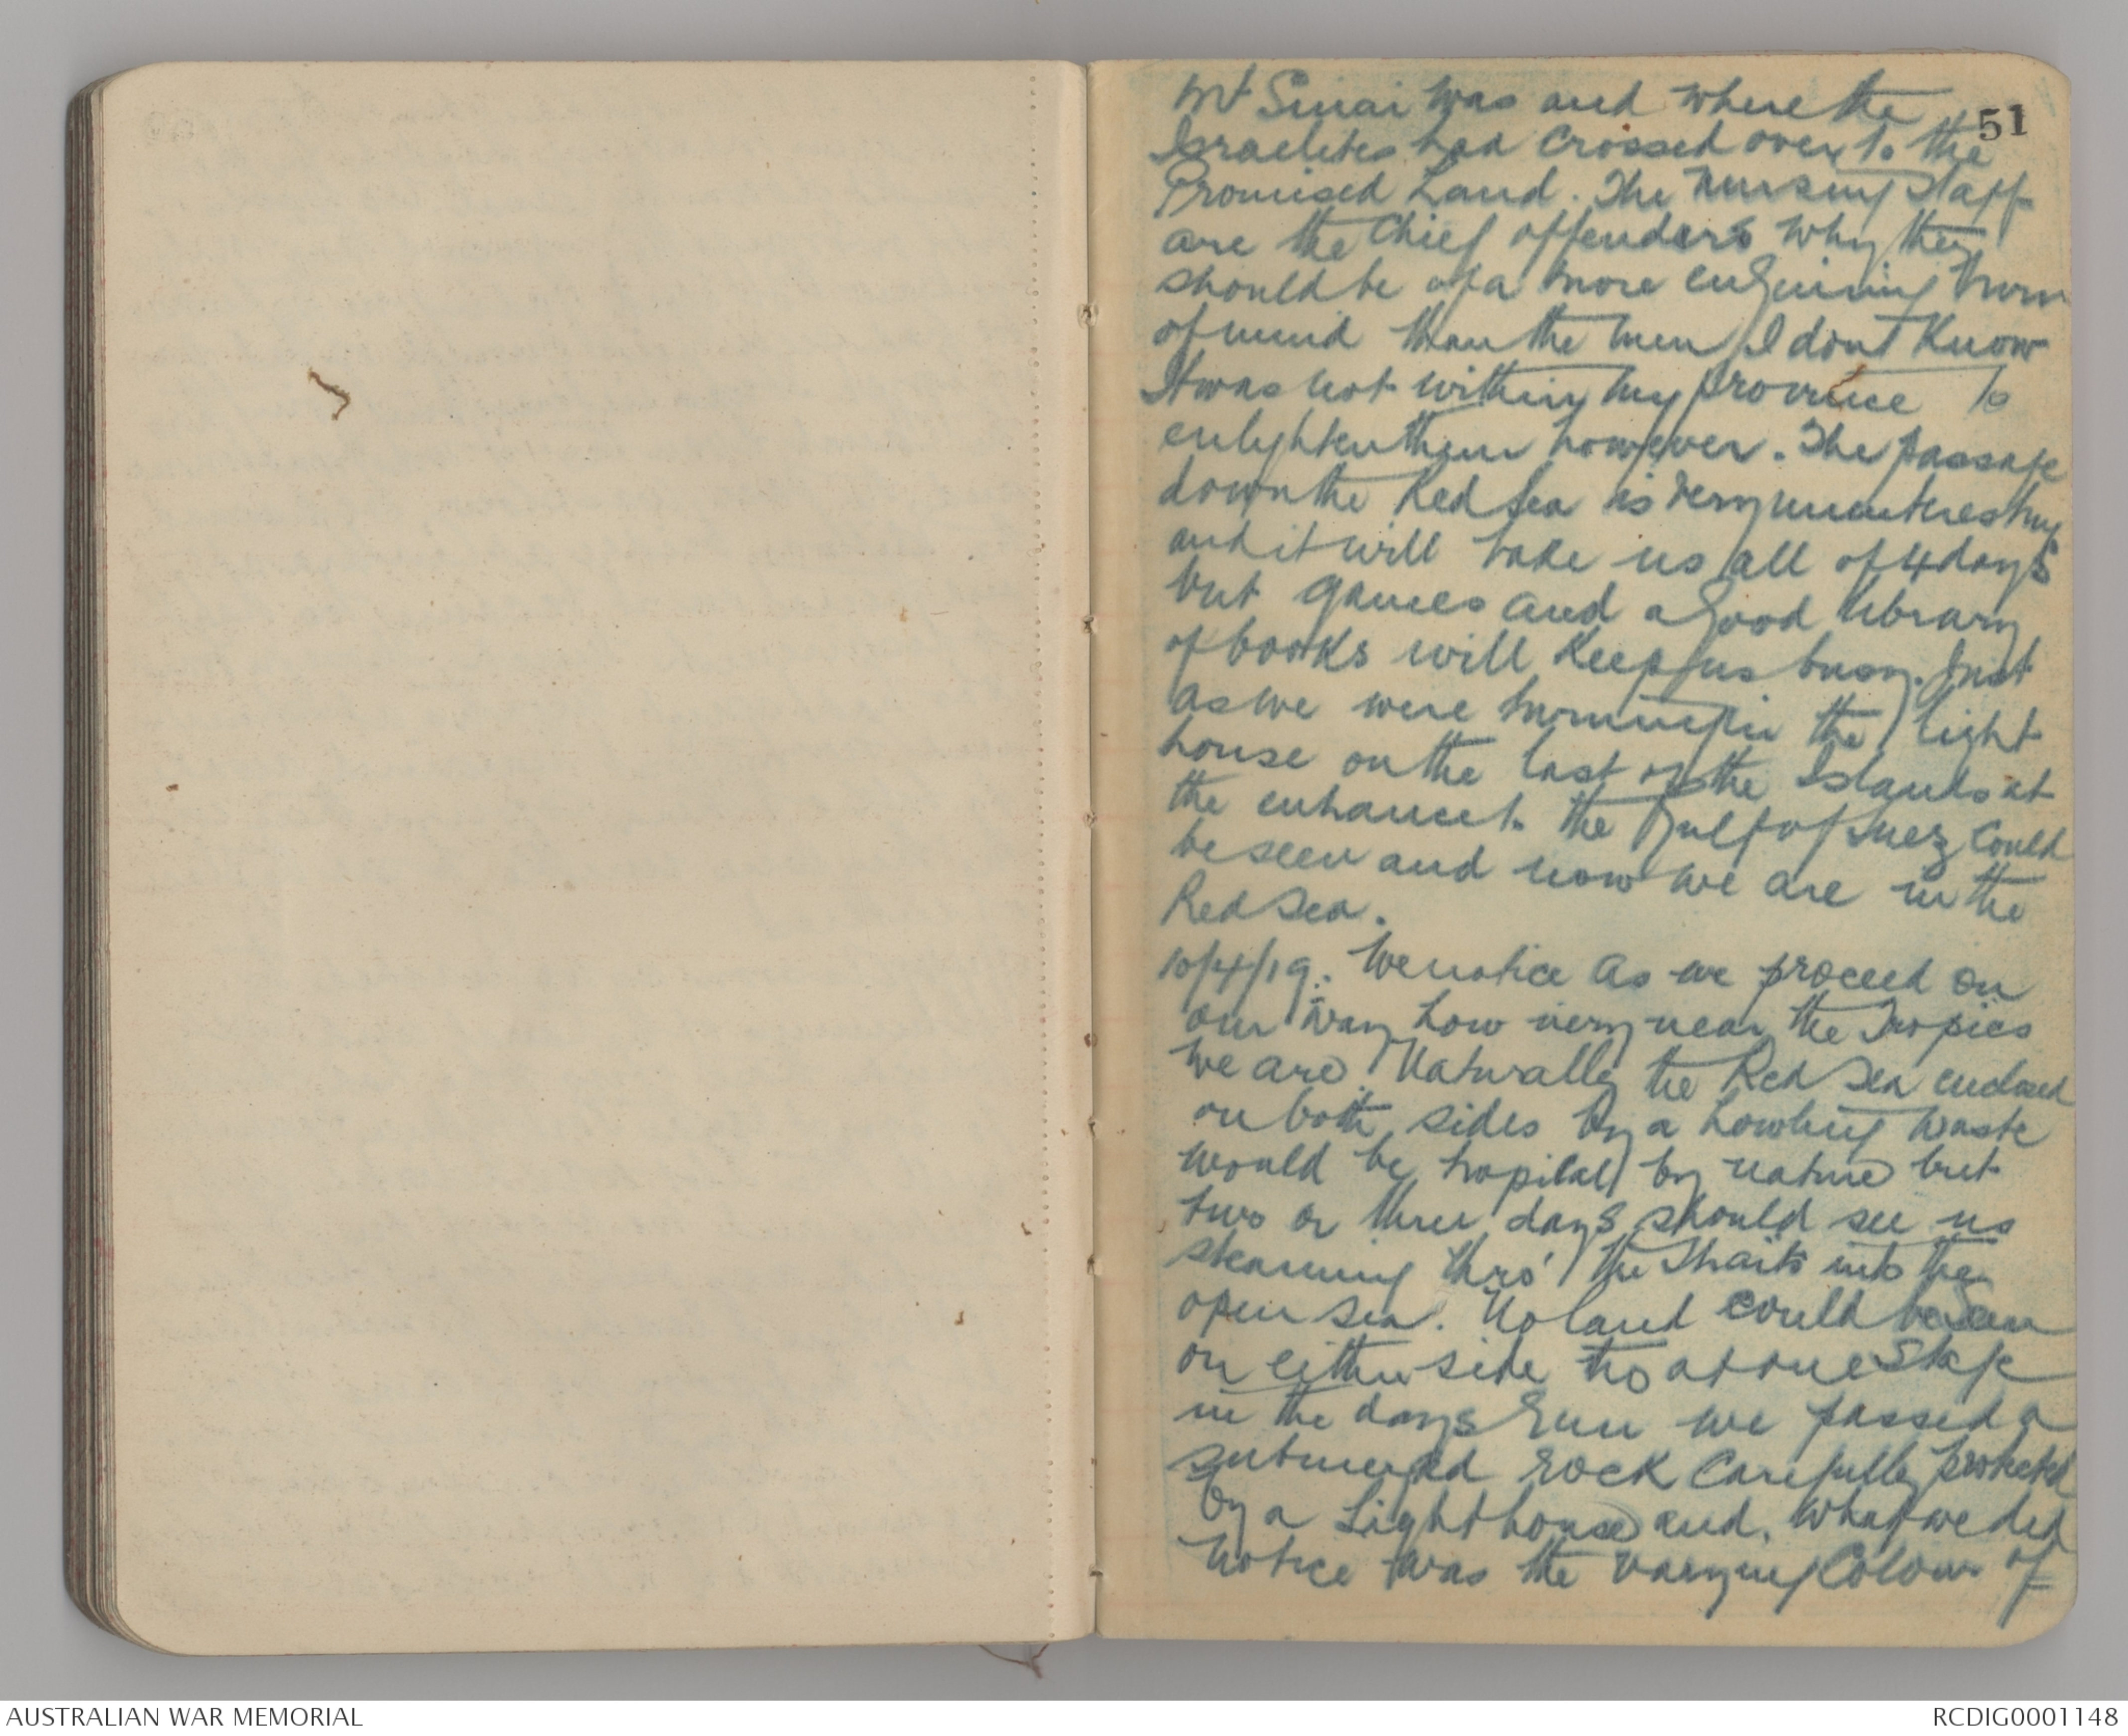 51
Mt Sinai was and where the
Israelites had crossed over to the
Promised Land. The Nursing Staff
are the Chief offenders why they
should be of a more enquiring turn
of mind than the men I dont Know
It was not within my province to
enlighten them however. The passage
down the Red Sea is very uninteresting
and it will take us all of 4 days
but games and a good library
of books will Keep us busy. Just
as we were turning in the light
house on the last of the Islands at
the entrance to the Gulf of Suez Could
be seen and now we are in the
Red Sea.
10/4/19. We notice as we proceed on
our way how very near the Tropics
we are. Naturally the Red Sea enclosed
on both sides by a howling waste
would be tropical by nature but
two or three days should see us
steaming thro' the Straits into the
open sea. No land could be seen
on either side tho at one stage
in the days run we passed a
submerged rock Carefully protected
by a Lighthouse and, what we did
notice was the varying Colour of
AUSTRALIAN WAR MEMORIAL
RCDIG0001148